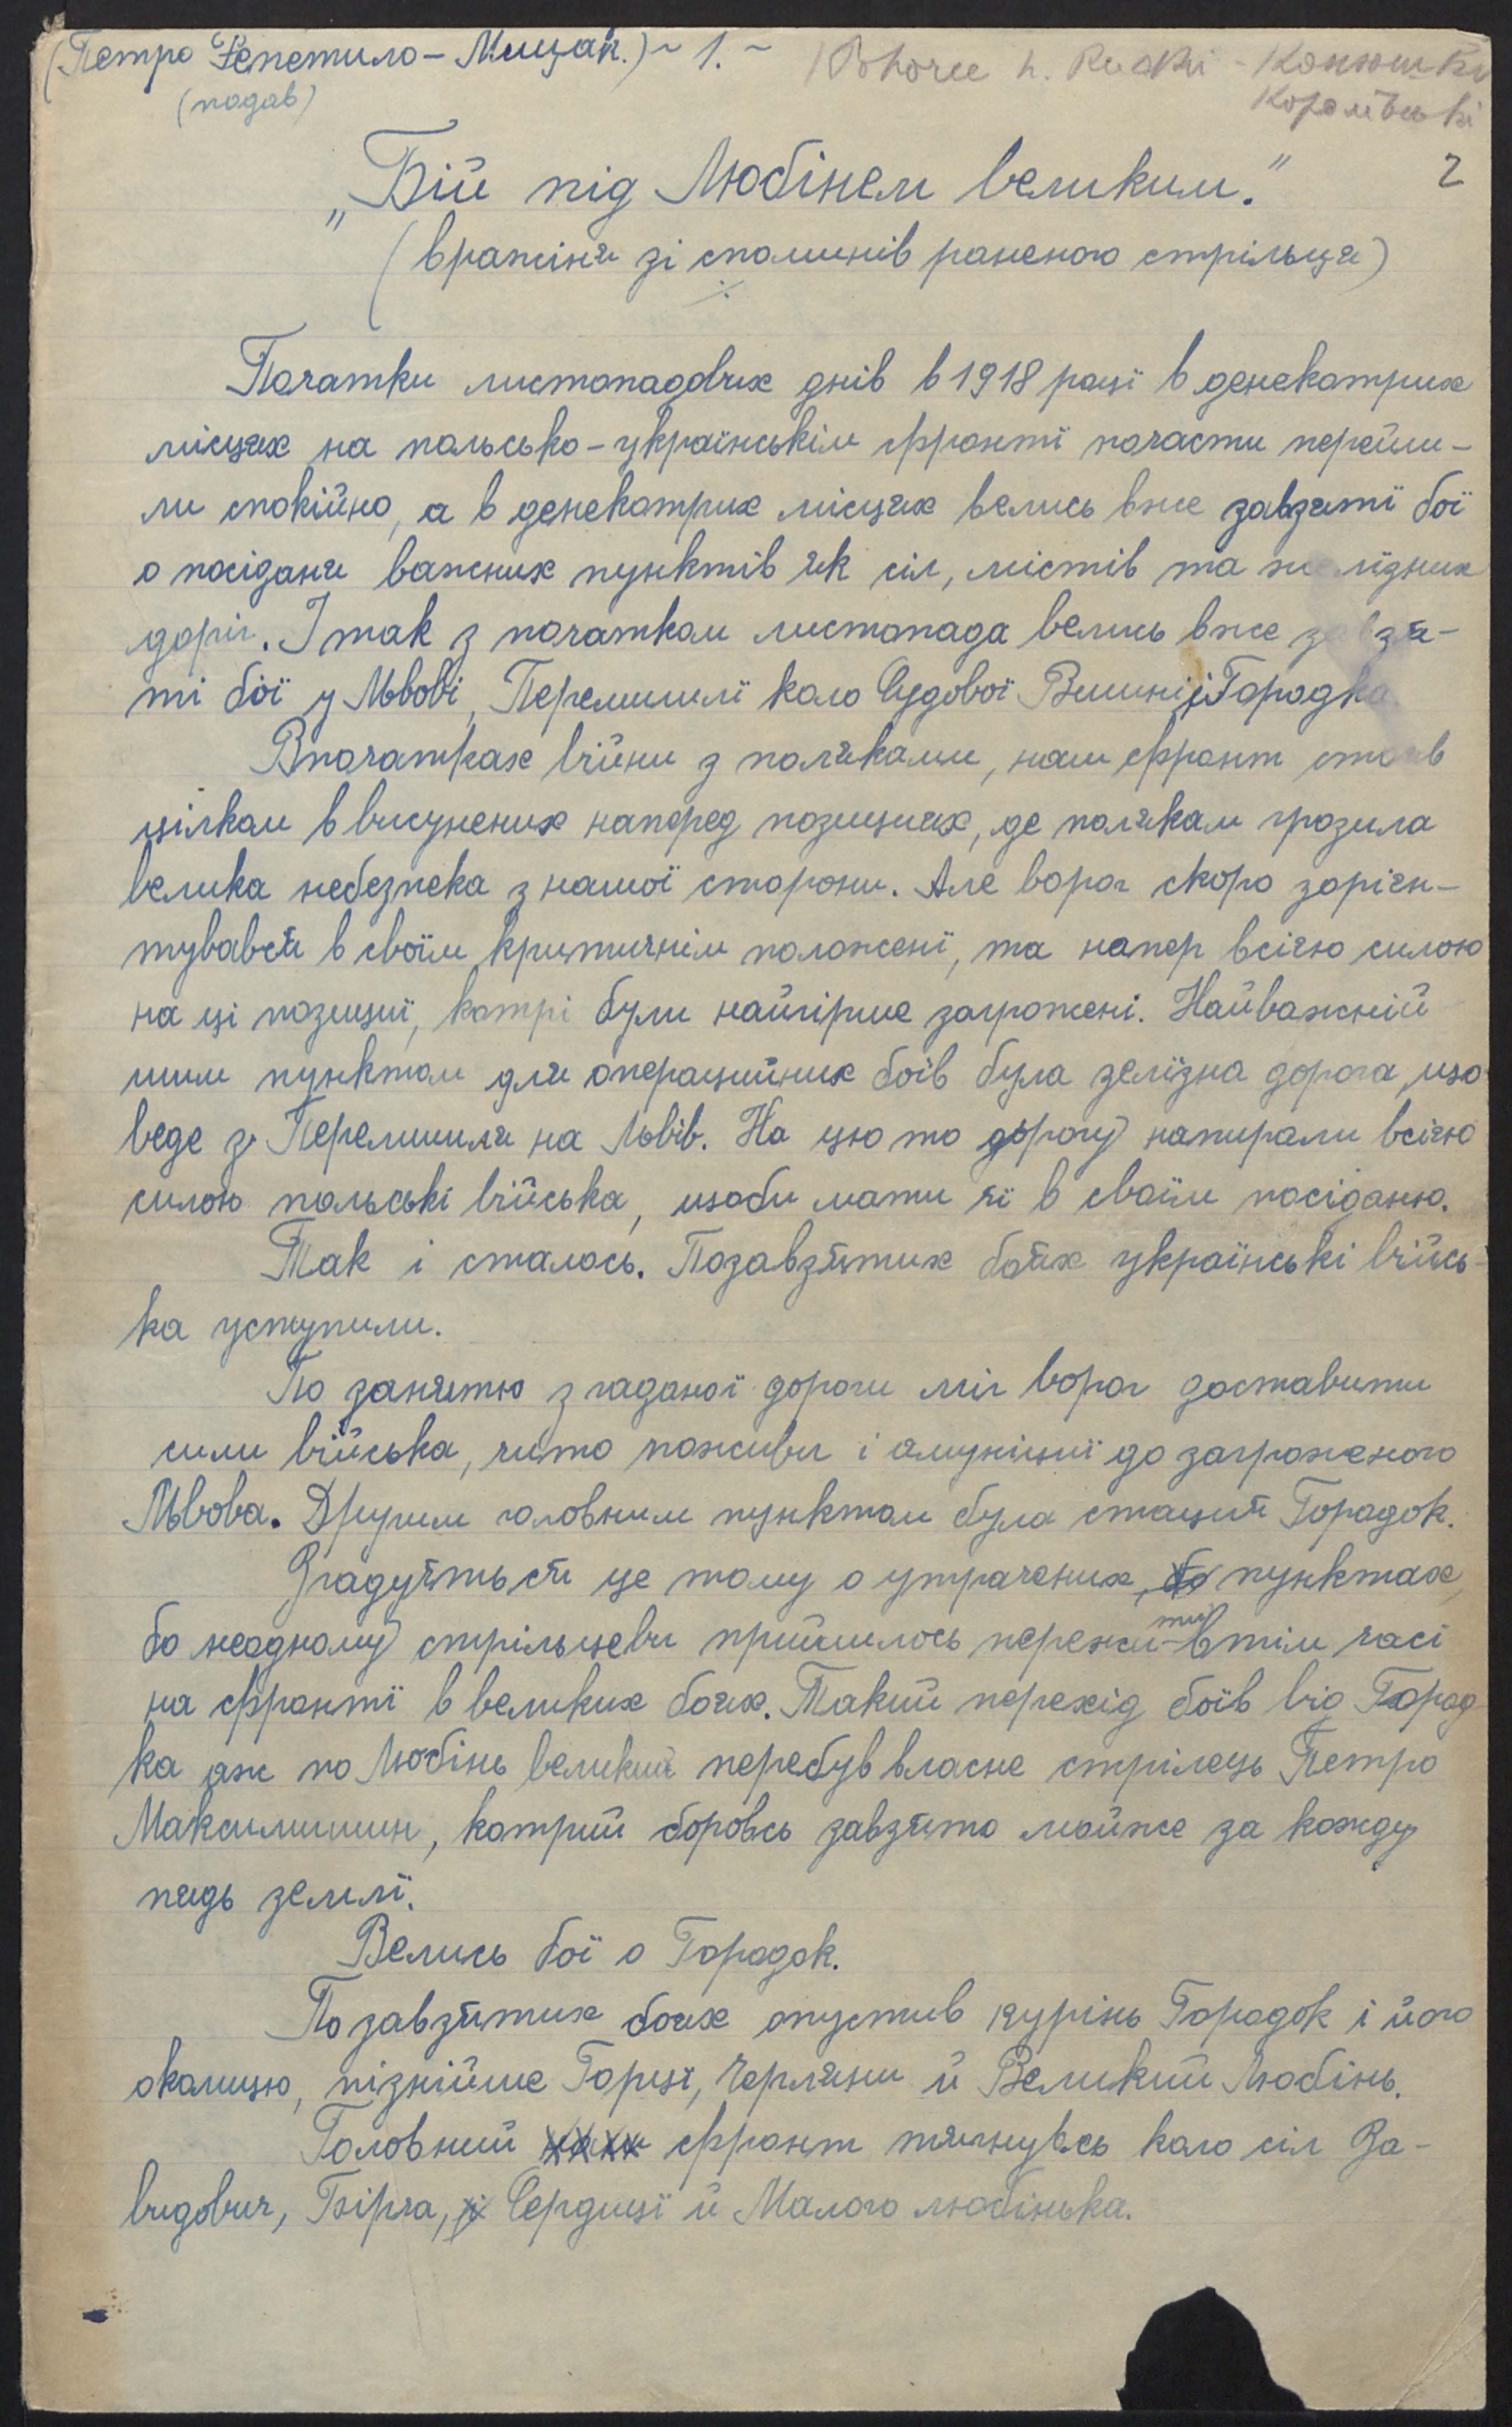 (Петро Репетило – Мищак.) ~ 1. ~
Pohorce k. Rudki - Конюшки
(подав)
Королівські
2
„Бій під Любінем великим."
(вражіня зі споминів раненого стрільця)
Початки листопадових днів в 1918 році в денекотрих
місцях на польсько-українськім фронті почасти перейш-
ли спокійно, а в денекотрих місцях велись вже завзяті бої
о посіданя важних пунктів як сіл, містів та желїзних
доріг. І так з початком листопада велись вже завзя-
ті бої у Львові, Перемишлї коло Судової Вишні і Городка.
Впочатках війни з поляками, наш фронт стояв
цілком в висунених наперед позициях, де полякам грозила
велика небезпека з нашої сторони. Але ворог скоро заріен-
тувався в своїм критичнім положені, та напер всією силою
на ці позициї, котрі були найгірше загрожені. Найважній
шим пунктом для операцийних боїв була зелїзна дорога що
веде з Перемишля на Львів. На цю то дорогу напирали всією
силою польські війська, щоби мати її в своїм посіданю.
Так і сталось. По завзятих боях українські війсь-
ка уступили.
По занятю згаданої дороги міг ворог доставити
сили війська, чито поживи і амуніциї до загроженого
Львова. Другим головним пунктом була стация Городок.
Згадуять ся це тому о утрачених, бо пунктах,
бо неодному стрільцеви прийшлось пережи-ти втім часі
на фронтї в великих боях. Такий перехід боїв від Город
ка аж по Любінь великий перебув власне стрілець Петро
Максимишин, котрий боровсь завзято майже за кожду
пядь землї.
Велись бої о Городок.
По завзятих боях опустив курінь Городок і його
околицю, пізнійше Горці, Черляни й Великий Любінь.
Головний фронт тягнувсь коло сіл За-
видович, Бірча, Сердиці й Малого любінька.